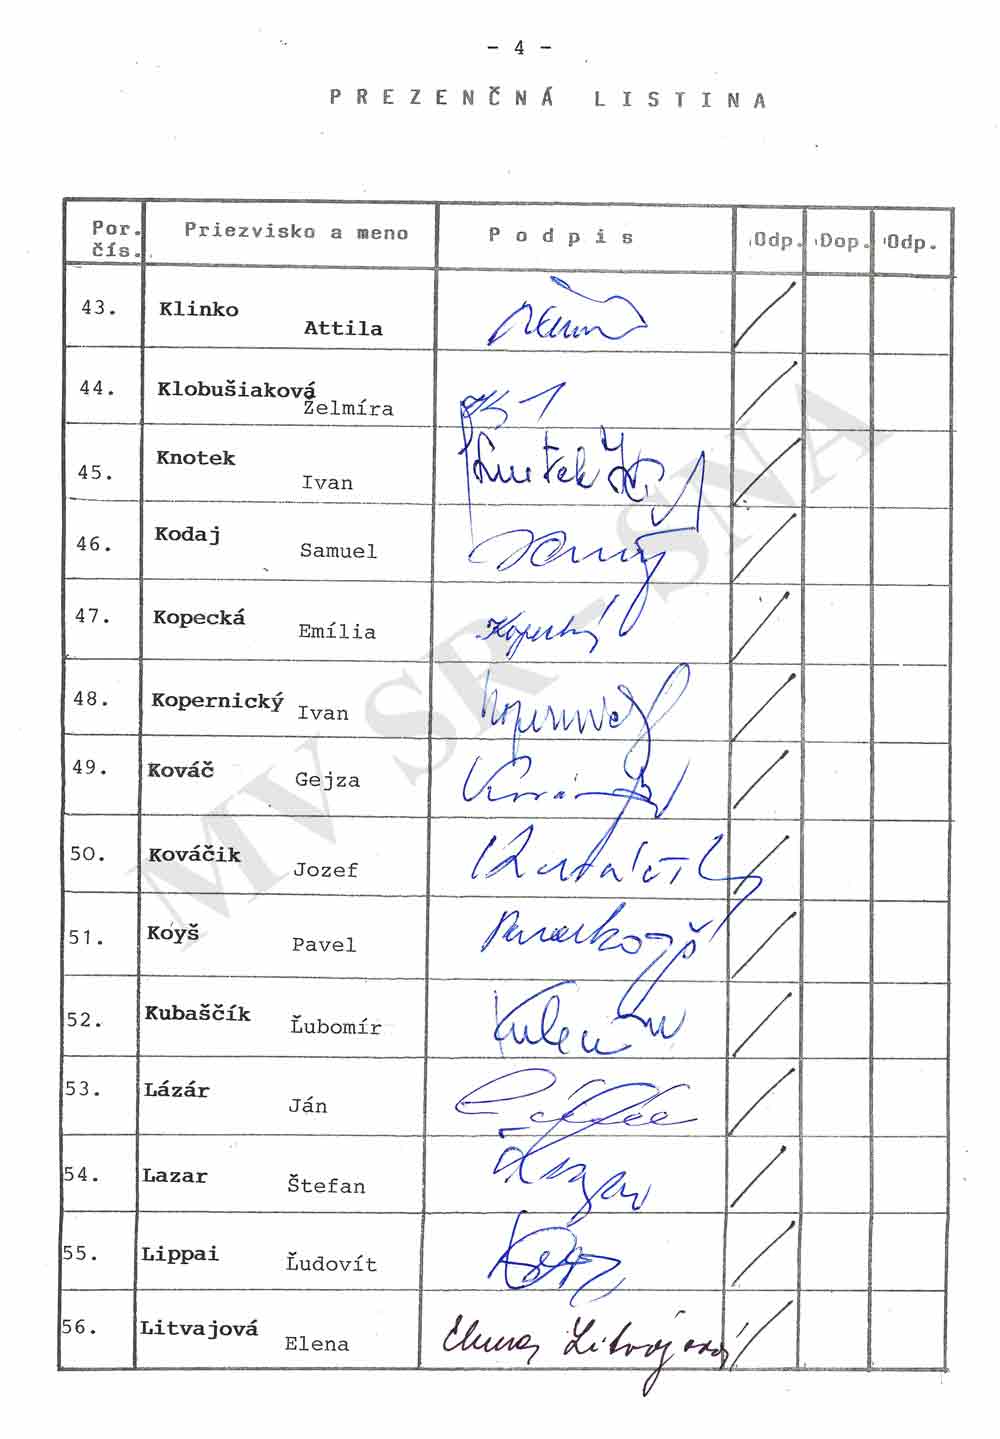 - 4 -
PREZENČNÁ LISTINA
Por. čís. Priezvisko a meno Podpis Odp. Dop. Odp.
43. Klinko Attila
44. Klobušiaková Želmíra
45. Knotek Ivan Knotek
46. Kodaj Samuel
47. Kopecká Emília
48. Kopernický Ivan
49. Kováč Gejza
50. Kováčik Jozef
51. Koyš Pavel
52. Kubaščík Ľubomír
53. Lázár Ján
54. Lazar Štefan Lazar
55. Lippai Ľudovít
56. Litvajová Elena Elena Litvajová
MV SR SNA